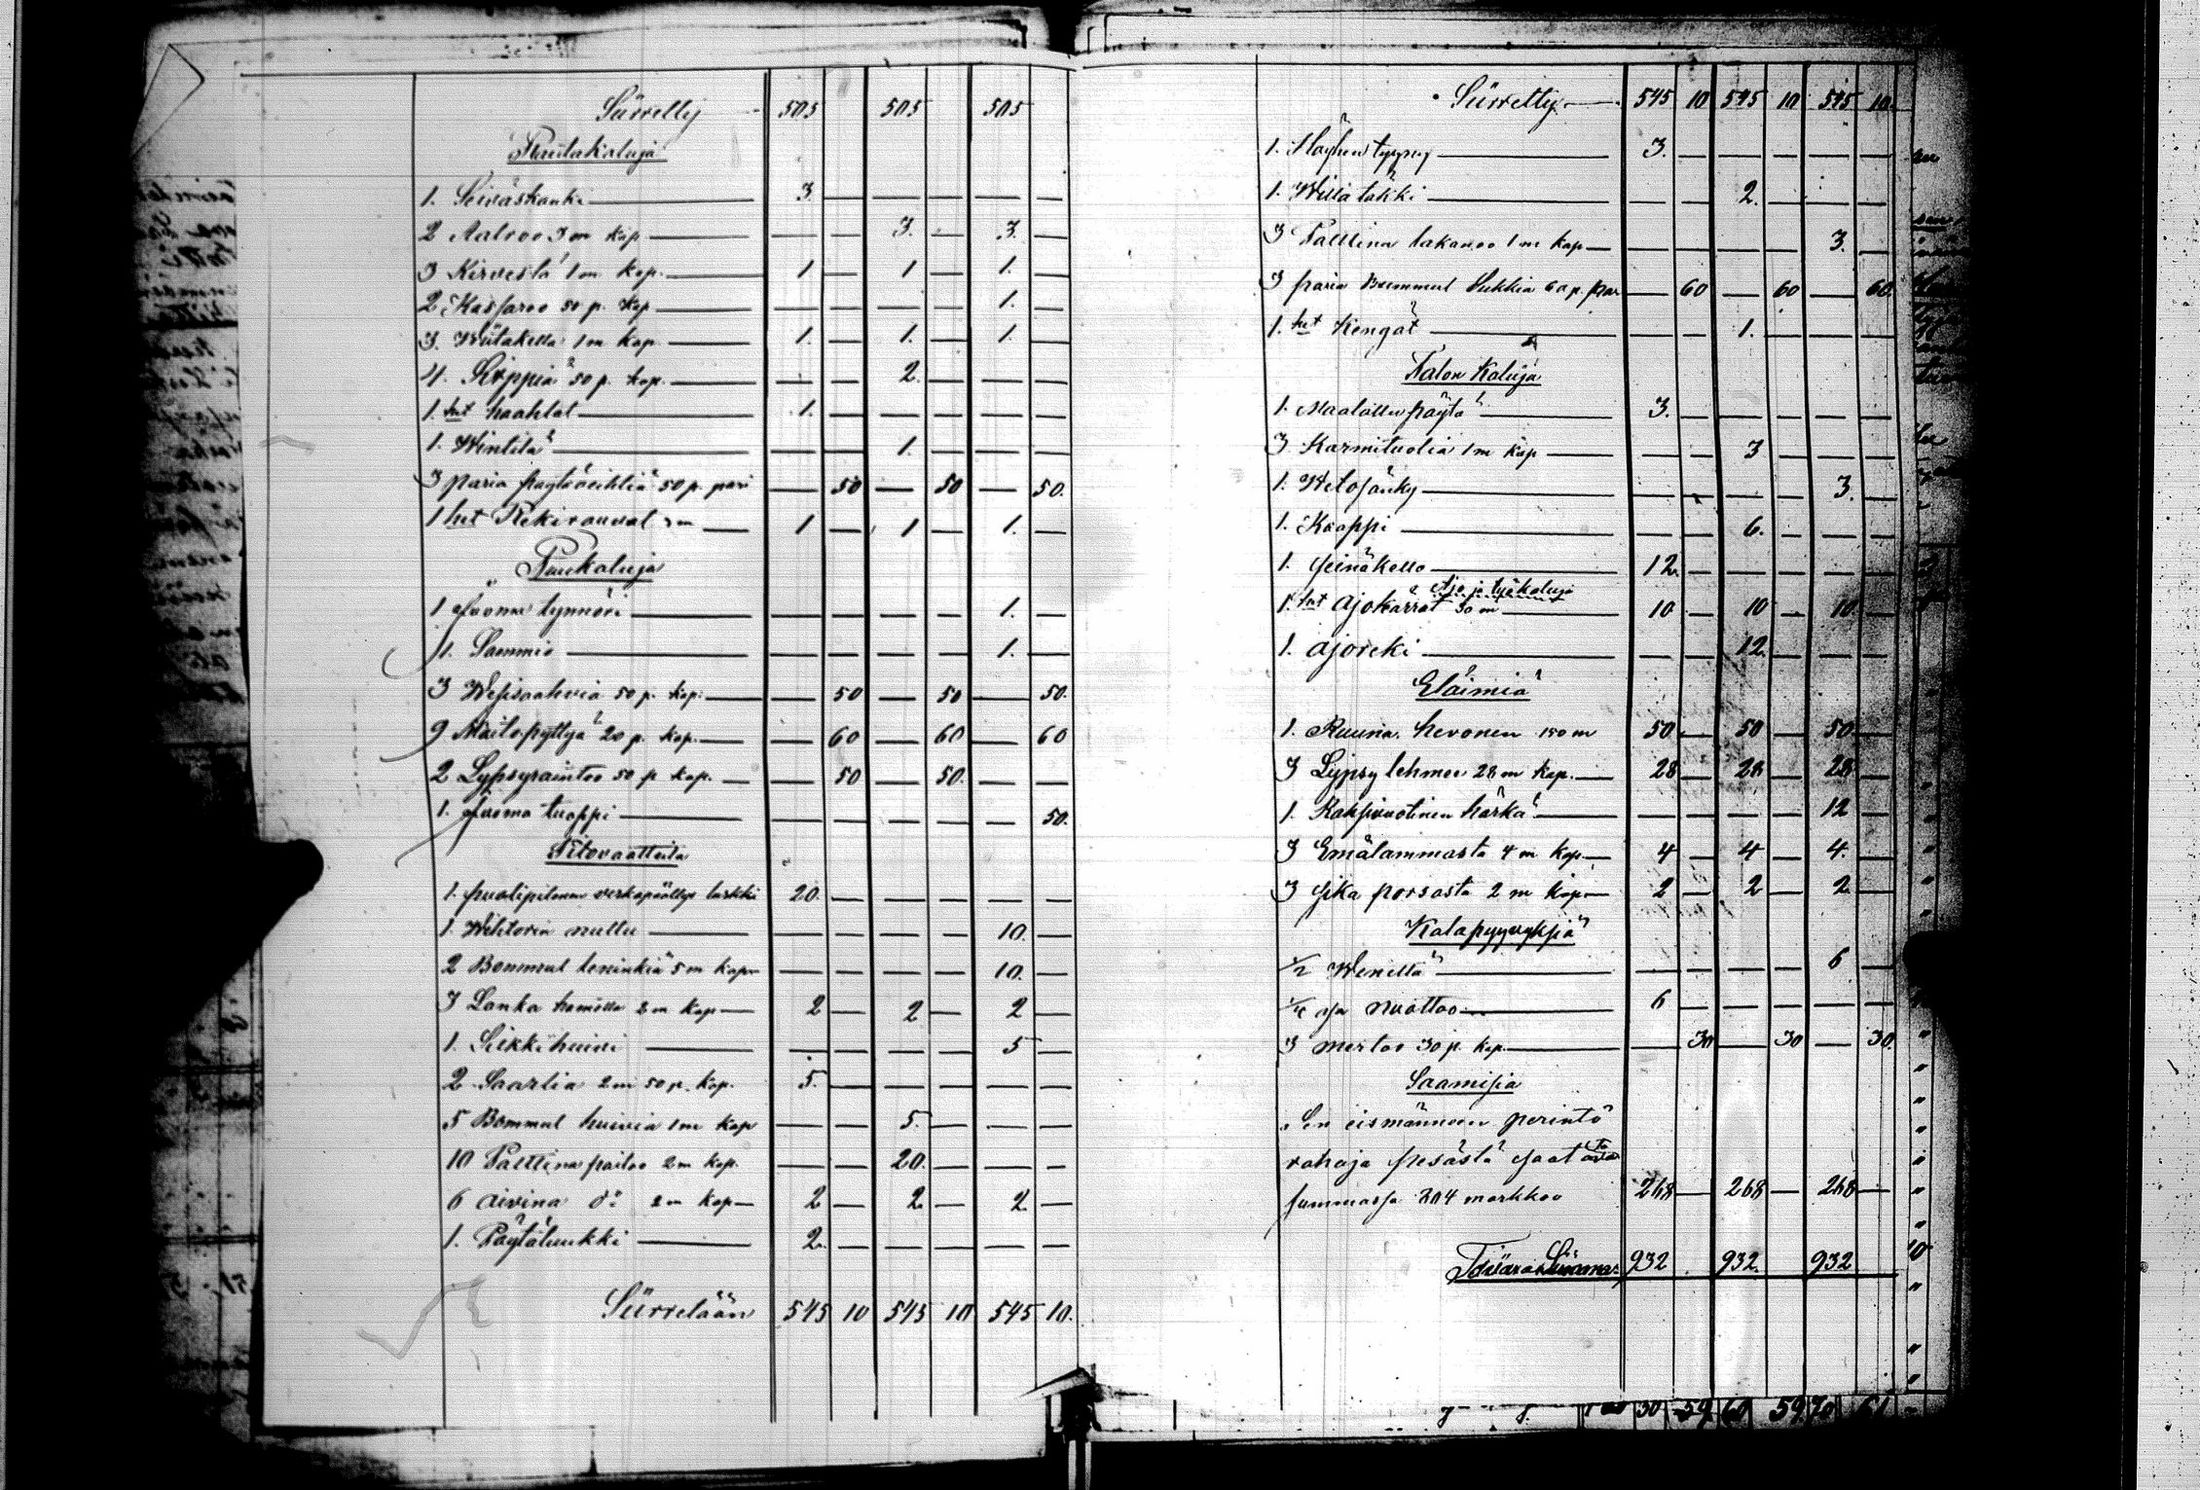 Siirretty 505 505 505
Rautakaluja
1. Seiväskanki — 3. — — — — —
2 Aatroo 3 m kap — — — 3. — 3. —
3 Kirvestä 1 m. kap. — 1 — 1 — 1. —
2 Kassaroo 50 p. kap — — — — — 1. —
3. Wiitaketta 1 m kap. — 1. — 1. — 1. —
4. Sirppiä 50 p. kap. — — — 2. — — —
1. tut haahlat — 1. — — — — —
1. Wintilä — — — 1. — — —
3 paria pöytäveihtiä 50 p. pari — 50 — 50 — 50.
1 tut Rekiraudat 3 m — 1 — 1 — 1. —
Puukaluja
1 Juoma tynnöri — — — — — 1. —
1. Saammio — — — — — 1. —
3 Wesisaahvia 50 p. kap. — — 50 — 50 — 50.
9 Maitopyttyä 20 p. kap. — — 60 — 60 — 60
2 Lypsyraintoo 50 p kap. — — 50 — 50. — —
1. Juoma tuoppi — — — — — — 50.
Pitovaatteita
1. puolipitonen verkapäällys turkki 20. — — — — —
1. Wihtorin nuttu — — — — — 10. —
2 Bommul leninkiä 5 m kap — — — — — 10. —
3 Lanka hametta 2 m kap — 2 — 2 — 2 —
1. Silkkihuivi — — — — — 5 —
2 Saarlia 2 m 50 p. kap. 5. — — — — —
5 Bommul huivia 1 m kap — — 5. — — —
10 Palttina paitoo 2 m kap. — — 20. — — —
6 aivina d:o 2 m kap — 2 — 2 — 2 —
1. Pöytäluukki — 2. — — — — —
Siirretään 545 10 545 10 545 10.
Siirretty — 545 10 545 10 545 10.
1. Höyhen tyyny — 3. — — — — —
1. Willa täkki — — — 2. — — —
3 Palttina lakanoo 1 m kap — — — — — 3. —
3 paria Bummul Sukkia 60 p. par — 60 — 60 — 60.
1. tut Kengät — — — 1. — — —
Talon Kaluja
1. Maalattu pöytä — 3. — — — — —
3 Karmituolia 1 m kap — — — 3 — — —
1. Wetosänky — — — — — 3. —
1. Kaappi — — — 6. — — —
1. seinäkello — 12. — — — — —
Ajo ja työkaluja
1. tut ajokärrät 30 m — 10 — 10 — 10 —
1. ajoreki — — — 12. — — —
Eläimiä
1. Ruuna hevonen 150 m 50. — 50 — 50. —
3 Lypsy lehmee 28 m kap. — 28 — 28 — 28 —
1. Kaksivuotinen härkä — — — — — 12 —
3 Emälammasta 4 m kap — 4 — 4 — 4. —
3 sika porsasta 2 m kap — 2 — 2 — 2. —
Kalapyyvyksiä
1/2 Wenettä — — — — — 6 —
1/4 sa nuottoo — 6 — — — — —
3 mertoo 30 p. kap. — — 30 — 30 — 30.
Saamisia
Sen eismänneen perintö
rahoja pesästä saatava
summassa 804 markkoo 268 — 268 — 268 —
932 932. 932